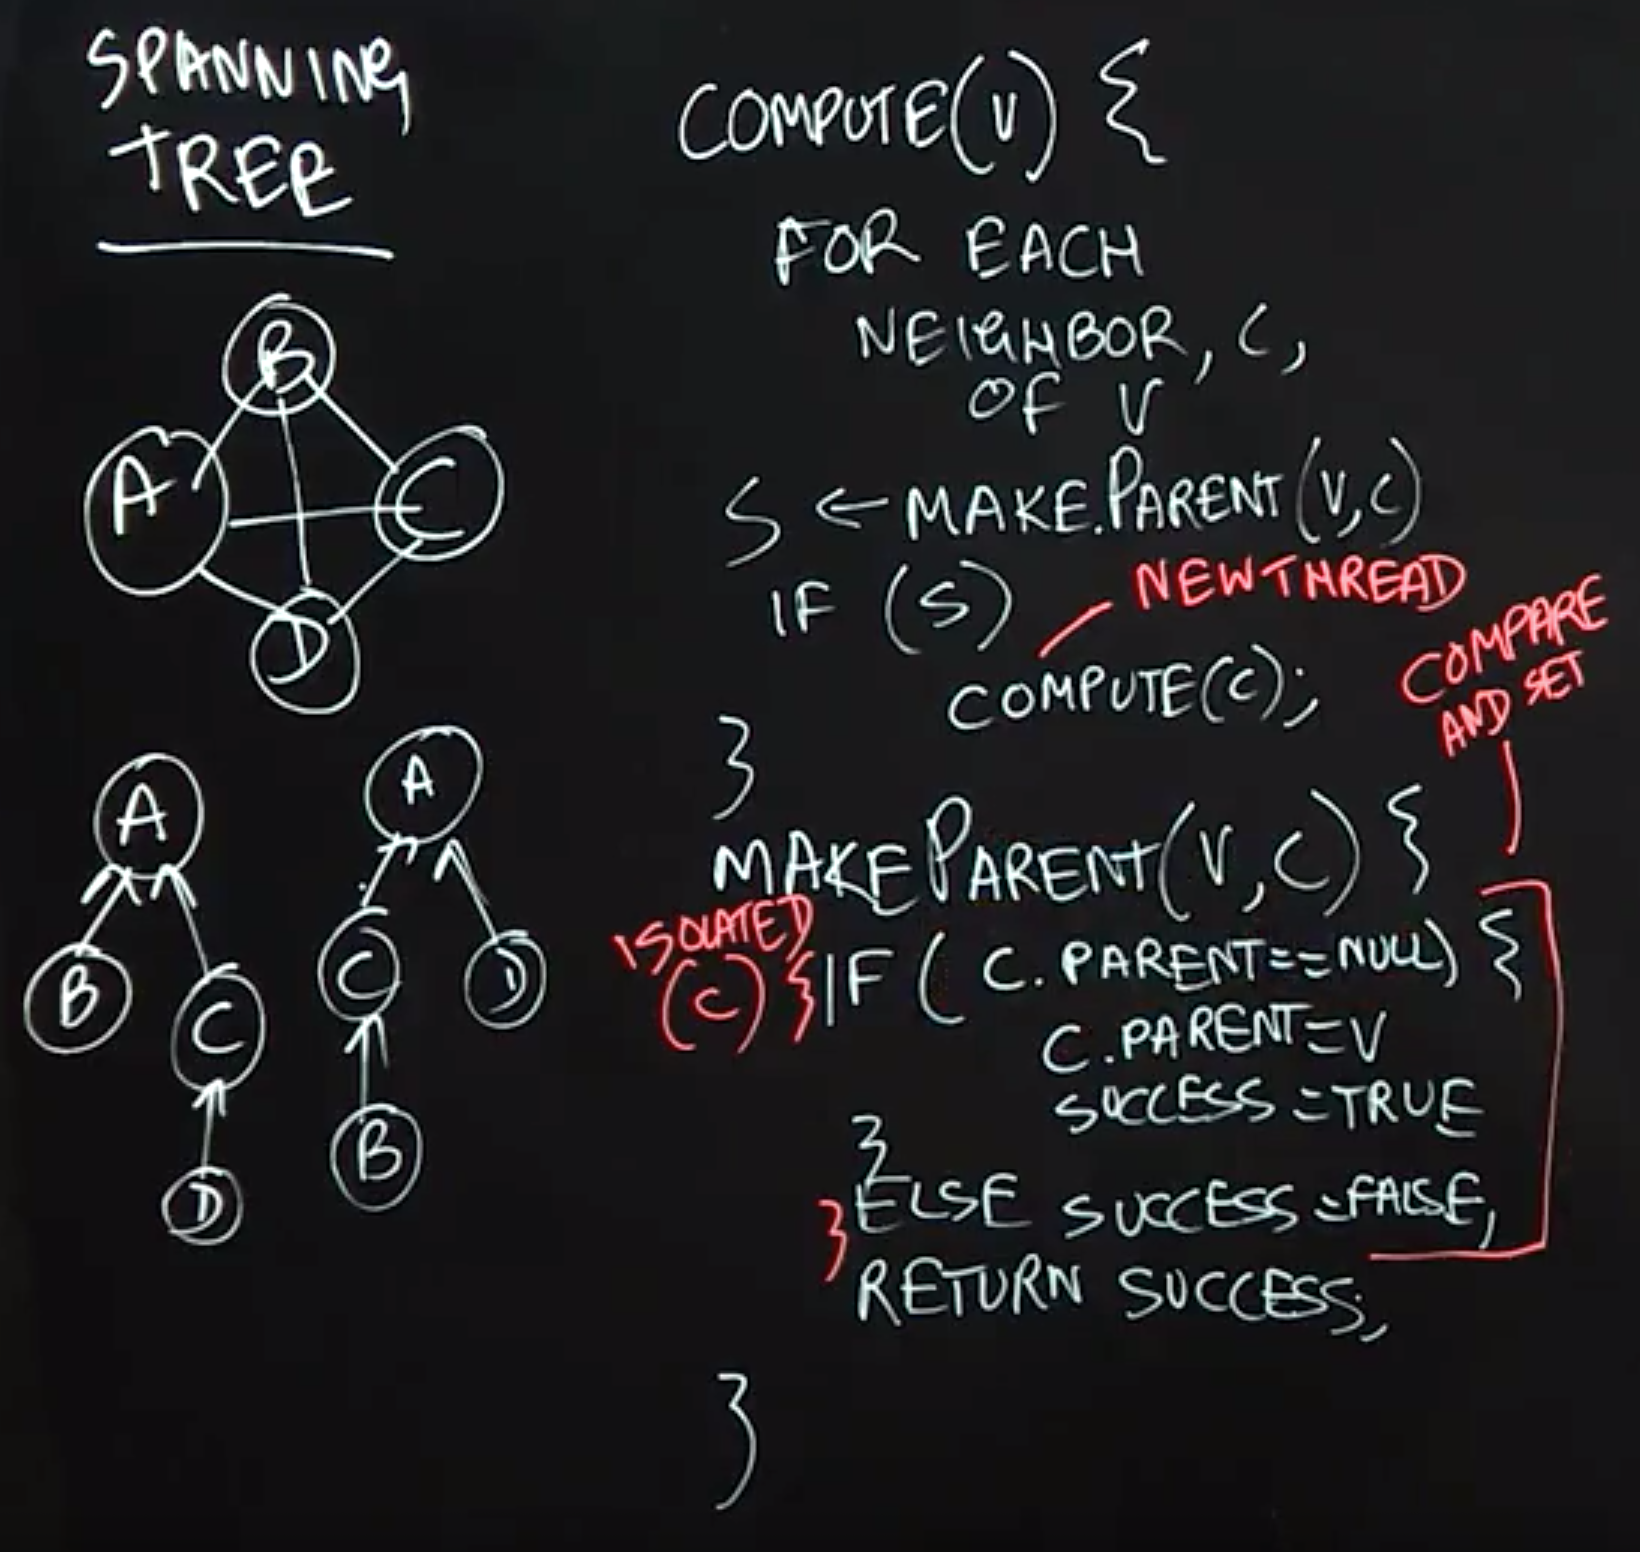 SPANNING
TREE
B
A
C
D
A
B
C
D
A
C
D
B
COMPUTE(V) {
FOR EACH
NEIGHBOR, C,
OF V
S ← MAKE.PARENT(V,C)
IF (S)
NEW THREAD
COMPUTE(C);
COMPARE
AND SET
}
MAKEPARENT(V,C) {
ISOLATED
(C) { IF ( C.PARENT==NULL) {
C.PARENT=V
SUCCESS=TRUE
}
} ELSE SUCCESS=FALSE,
RETURN SUCCESS;
}